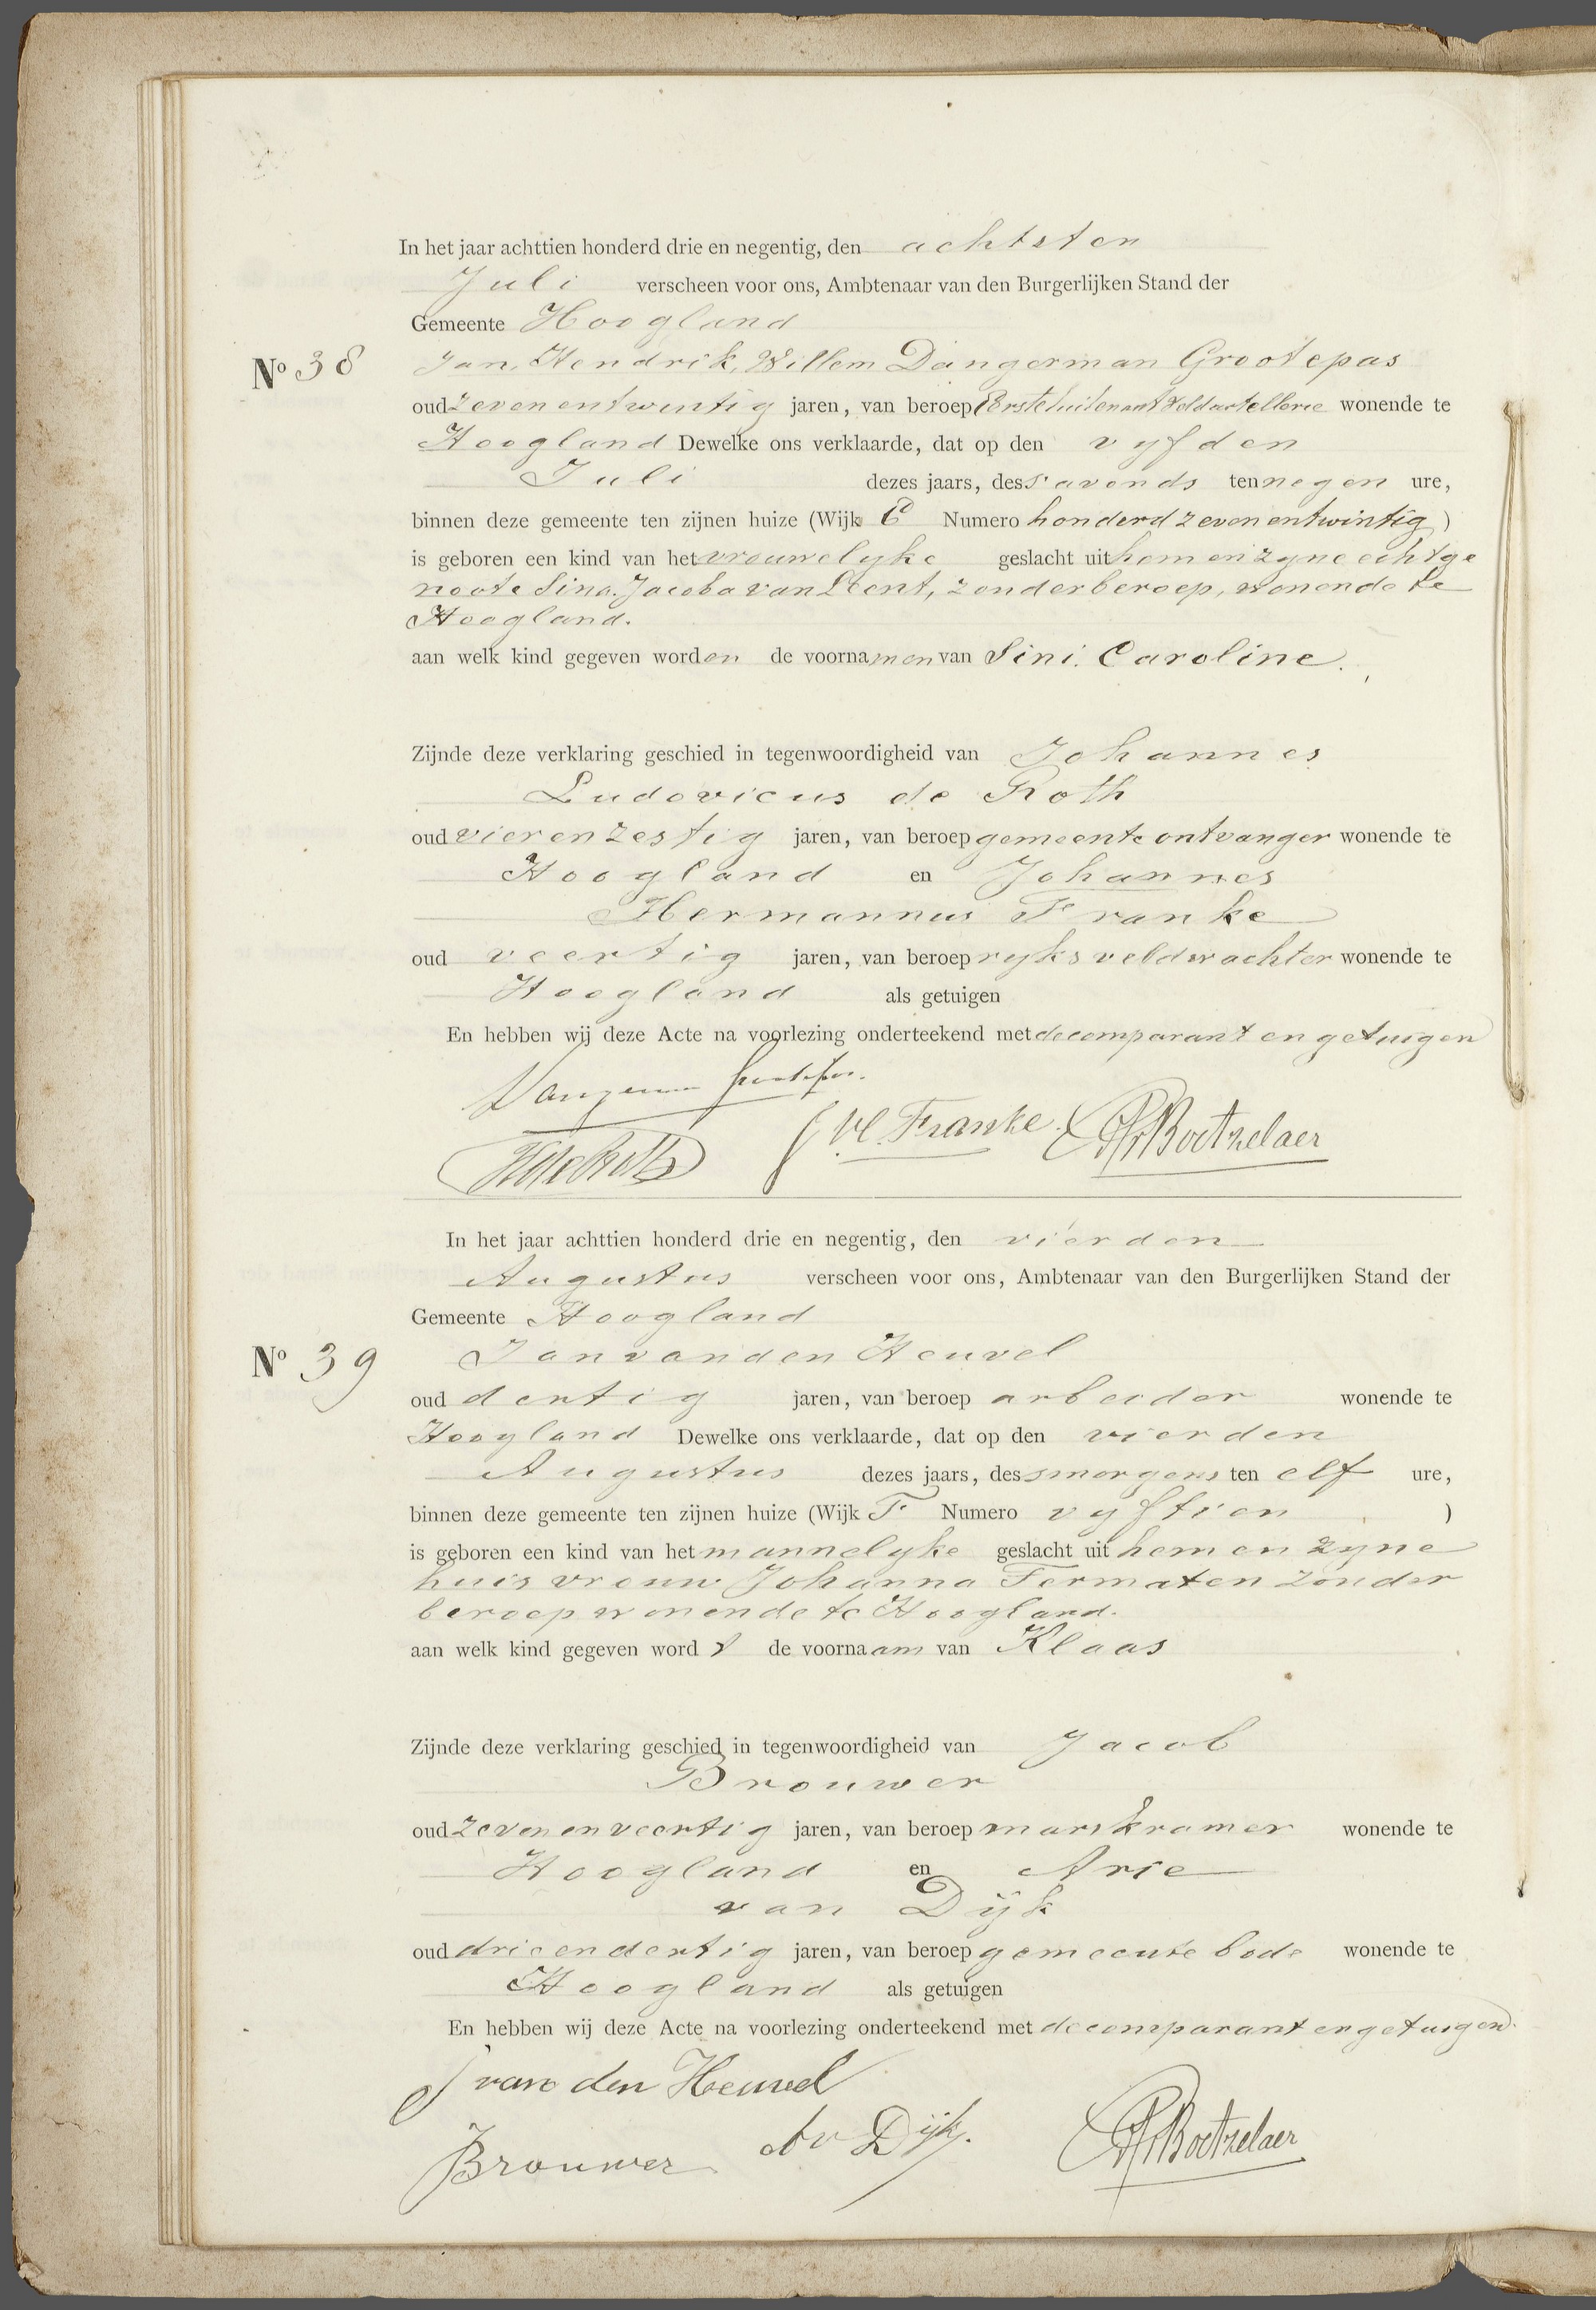 In het jaar achttien honderd drie en negentig, den achtsten
Juli verscheen voor ons, Ambtenaar van den Burgerlijken Stand der
Gemeente Hoogland
No 38 Jan, Hendrik, Willem Dangerman Grootepas
oud zevenentwintig jaren, van beroep Eersteluitenant Veldartellerie wonende te
Hoogland Dewelke ons verklaarde, dat op den vyfden
Juli dezes jaars, des s'avonds ten negen ure,
binnen deze gemeente ten zijnen huize (Wijk Numero honderd zevenentwintig)
is geboren een kind van het vrouwelyke geslacht uit hem en zyne echtge
noote Sina. Jacoba van Leent, zonder beroep, wonende te
Hoogland.
aan welk kind gegeven worden de voornamen van Sini. Caroline.
Zijnde deze verklaring geschied in tegenwoordigheid van Johannes
Ludovicus de Roth
oud vierenzestig jaren, van beroep gemeente ontvanger wonende te
Hoogland en Johannes
Hermannus Franke
oud veertig jaren, van beroep ryks veldwachter wonende te
Hoogland als getuigen
En hebben wij deze Acte na voorlezing onderteekend met de comparant en getuigen
J H. Franke. Boetzelaer
In het jaar achttien honderd drie en negentig, den vierden
Augustus verscheen voor ons, Ambtenaar van den Burgerlijken Stand der
Gemeente Hoogland
No 39 Jan van den Heuvel
oud dertig jaren, van beroep arbeider wonende te
Hoogland Dewelke ons verklaarde, dat op den vierden
Augustus dezes jaars, des smorgens ten elf ure,
binnen deze gemeente ten zijnen huize (Wijk F Numero vyftien )
is geboren een kind van het mannelyke geslacht uit hem en zyne
huisvrouw Johanna Termaten zonder
beroep wonende te Hoogland.
aan welk kind gegeven word t de voornaam van Klaas
Zijnde deze verklaring geschied in tegenwoordigheid van Jacob
Brouwer
oud zevenenveertig jaren, van beroep marskramer wonende te
Hoogland en Arie
van Dijk
oud drieendertig jaren, van beroep gemeente bode wonende te
Hoogland als getuigen
En hebben wij deze Acte na voorlezing onderteekend met de comparant en getuigen.
J van den Heuvel
J Brouwer A v Dijk. Boetzelaer